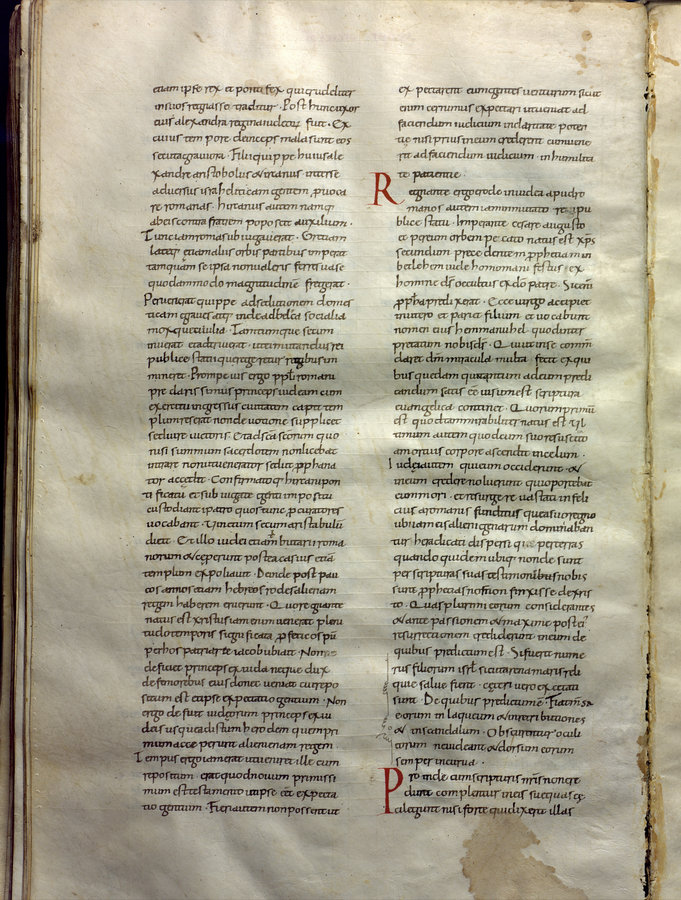 etiam ipse rex et pontifex qui crudeliter
in suos regnasse traditur. Post hunc uxor
eius alexandra regina iudeorum fuit. Ex
cuius tempore deinceps mala sunt eos
secuta graviora. Filii quippe huius ale
xandre aristobolus & hircanus inter se
adversus israheliticam gentem provoca
re romanas. hircanus autem namque
ab eis contra fratrem poposcit auxilium.
Tunc iam roma subiugaverat. Greciam
lateque etiam aliis orbis partibus imperat
tamquam se ipsa non valeris ferre vase
quodammodo magnitudine fregerat.
Pervenerat quippe ad seditiones domes
ticam egaverat inde ad bella socialia
moxque civilia. Tantumque se cum
inuerat et adtriverat. ut ei mutandus rei
publice status quo regeretur regibus im
mineret. Pompeius ergo populi romani
preclarissimus princeps iudeam cum
exercitu ingressus civitatem capit tem
plum reserat non devotione supplicet
sed iure victoris. Et ad sca scorum quo
nisi summum sacerdotem non licebat
intrare non ut venerator sed ut prophana
tor accedit. Confirmatoque hircani pon
tificatu et subiugate genti imposito
custodiant ipatro quos tunc procuratores
vocabant. Vinctum secum aristobulum
ducit. Ex illo iudei etiam tributarii roma
norum ee ceperunt postea casius etiam
templum expoliavit. Deinde post pau
cos annos etiam herodem alienigenam
regem habere meruerunt. Quo regnante
natus est xristus iam enim venerat pleni
tudo temporis significata prophetico spu
per hos patriarche iacob ubi ait. Non
deficiet princeps ex iuda neque dux
de femoribus eius donec veniat cui repo
situm est et ipse expectatio gentium. Non
ergo defuit iudeorum princeps ex iu
deis usque ad istum herodem quem pri
mum acceperunt alienigenam regem.
Tempus ergo iam erat ut veniret ille cum
repositum erat quod novum promissi
mum est testamento ut ipse eet expecta
tio gentium. Fieri autem non posset ut
expectarent eum gentes venturum sicut
eum cernimus expectari ut veniat ad
faciendum iudicium in claritate poten
tie nisi prius in eum crederent cum veni
ret ad faciendum iudicium in humilita
te patientie.
Regnante ergo erode in iudea apud ro
manos autem iam mutato reipu
blice statu. Imperante cesare augusto
et per eum orbe pacato natus est xps
secundum precedentem prophetiam in
bethlehem iude homo manifestus. ex
homine ds occultus ex do patre. Sicut
propheta predixerat. Ecce virgo accipiet
in utero et pariet filium et vocabunt
nomen eius hemmanuhel quod inter
pretatum nobis ds. Qui ut in se comm
daret dm miracula multa fecit ex qui
bus quedam quantum ad eum predi
candum satis ee visum est scriptura
evangelica continet. Quorum primum
est quod tam mirabiliter natus est. Ul
timum autem quod cum suo resuscitato
a mortuis corpore ascendit in celum.
Iudei autem qui eum occiderunt. &
in eum credere noluerunt quia oportebat
eum mori. et resurgere vastati infeli
cius a romanis funditusque a suo regno
ubi iam eis alienigenarum dominaban
tur heradicati dispersique per terras
quando quidem ubique non desunt
per scripturas suas testimonibus nobis
sunt prophetias non finxisse de xris
to. Quas plurimi eorum considerantes
& ante passionem & maxime post ei
resurrectionem crediderunt in eum de
quibus predictum est. Si fuerit nume
rus filiorum isrl sicut arena maris reli
quie salve fient. ceteri vero excecati
sunt. De quibus predictum e. Fiat m sa
eorum in laqueum & in retributiones
& in scandalum. Obscurentur oculi
eorum ne videant & dorsum eorum
semper incurva.
Proinde cum scripturis nris non cre
dunt complentur in eis sue quas ce
ci legunt nisi forte quis dixerit illas